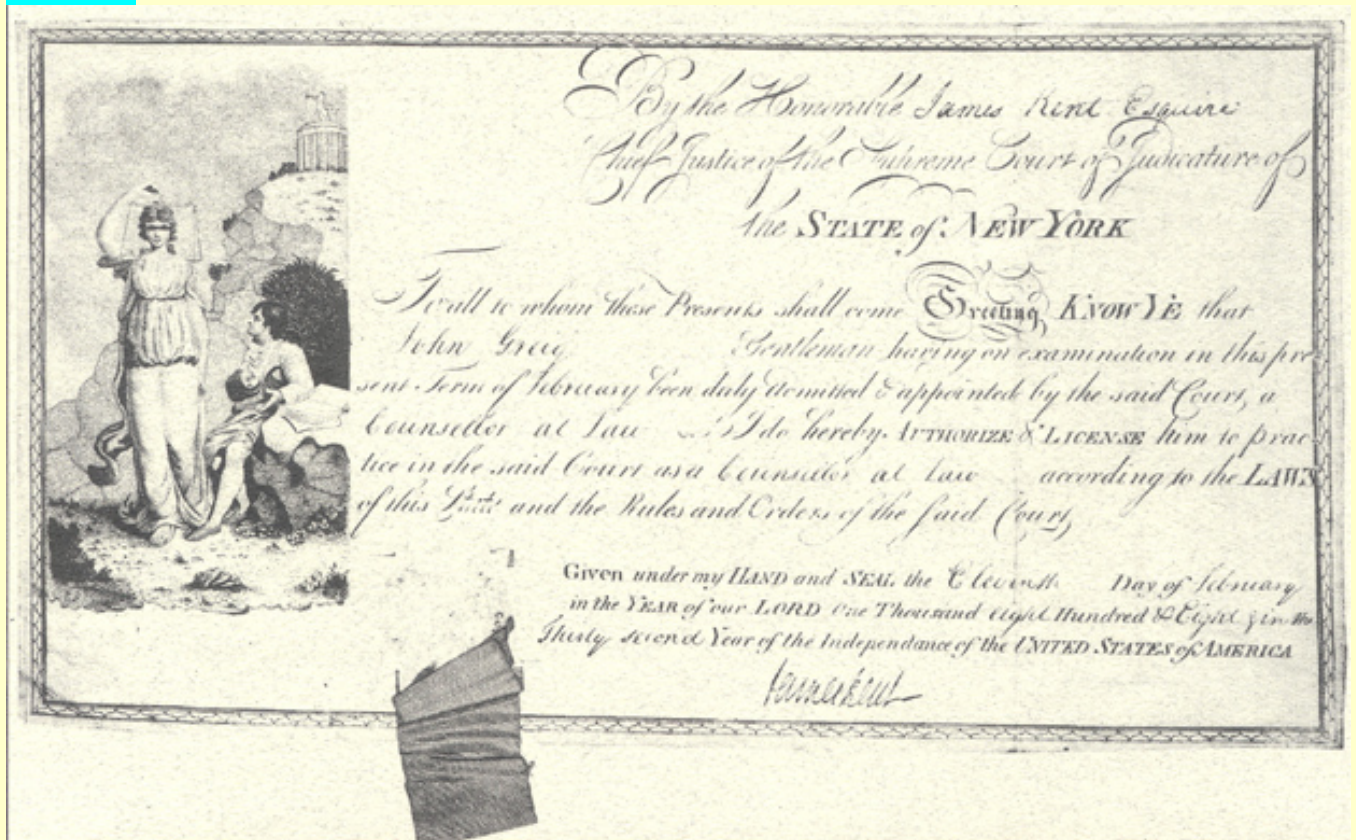 By the Honorable James Kent Esquire
Chief Justice of the Supreme Court of Judicature of
the STATE of NEW YORK
To all to whom these Presents shall come Greeting, KNOW YE that
John Greig Gentleman having on examination in this pre-
sent Term of February been duly admitted & appointed by the said Court, a
Counsellor at Law I do hereby AUTHORIZE & LICENSE him to prac-
tice in the said Court as a Counsellor at Law according to the LAWS
of this State and the Rules and Orders of the said Court,
Given under my HAND and SEAL the Eleventh Day of February
in the YEAR of our LORD One Thousand eight Hundred & Eight & in the
Thirty second Year of the Independance of the UNITED STATES of AMERICA
James Kent